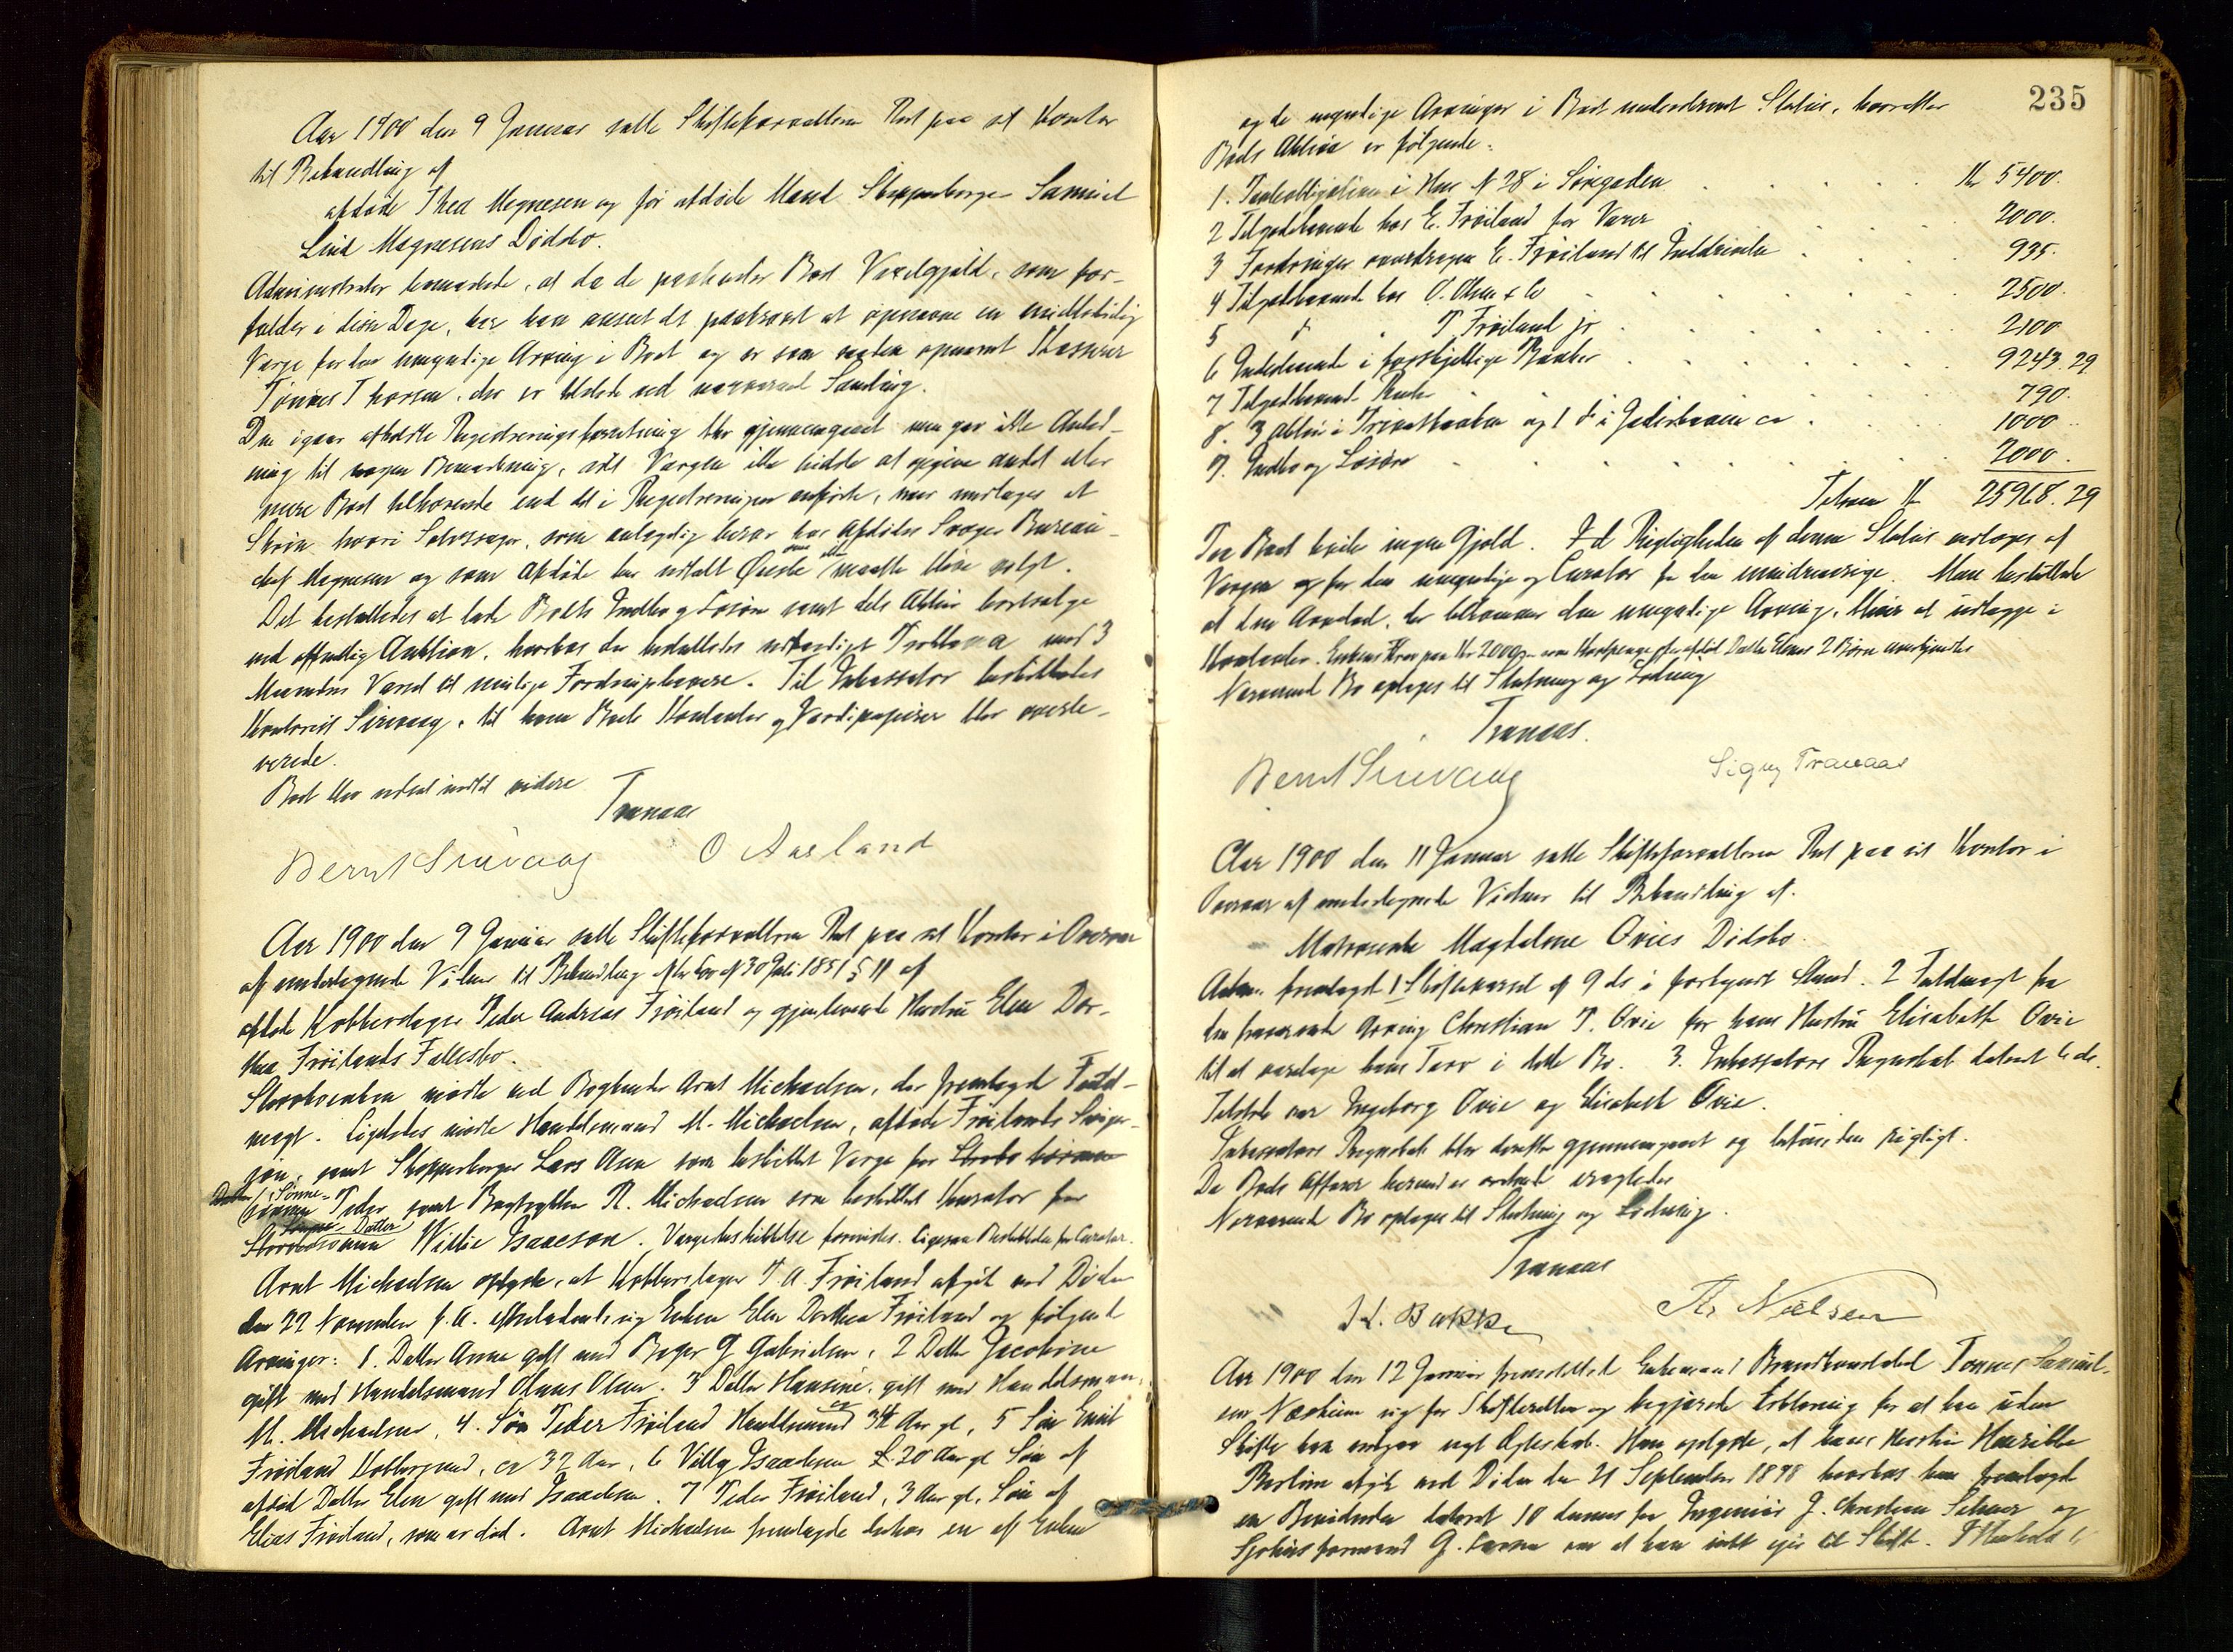 Aar 1900 den 9 Januar satte Skifteforvalteren Ret paa sit Kontor
til Behandling af
afdøde Thea Magnesen og før afdøde Mand Skipperborger Samuel
Lind Magnesens Dødsbo.
Administrator bemærkede, at da de paahviler Boet Vexelgjæld, som for-
falder i disse Dage, har han anseet det paakrævet at opnævne en midlertidig
Værge for den umyndige Arving i Boet og er som saadan opnævnt Kasserer
Tønnes Thorsen, der er tilstede ved nærværende Samling.
Den igaar afholdte Registreringsforretning blev gjennemgaaet men gav ikke Anled-
ning til nogen Bemærkning, idet Værgen ikke vidste at opgive andet eller
mere Boet tilhørende end det i Registreringen anførte, naar undtages et
Skrin hvori Sølvsager, som antagelig beror hos Afdødes Svoger Bureau-
chef Magnesen og som Afdøde har udtalt Ønske om ikke maatte blive solgt.
Det besluttedes at lade Boets Indbo og Løsøre samt dets Aktier bortsælge
ved offentlig Auktion, hvorhos der besluttedes udfærdiget Proklama med 3
Maaneders Varsel til mulige Fordringshavere. Til Inkassator beskikkedes
Kontorist Sirevaag, til ham Boets Kontanter og Værdipapirer blev overle-
verede.
Boet blev udsat indtil videre
Tranaas
Bernt Sirevaag O Aarland
Aar 1900 den 9 Januar satte Skifteforvalteren Ret paa sit Kontor i Overvær
af undertegnede Vidner til Behandling efter Lov af 30 Juli 1851 § 11 af
afdøde Kobberslager Peder Andreas Frøiland og gjenlevende Hustru Elen Dor-
thea Frøilands Fællesbo.
Stervboenken mødte ved Boghandler Arnt Michaelsen, der fremlagde Fuld-
magt. Ligeledes mødte Handelsmand M. Michaelsen, afdøde Frøilands Sviger-
søn, samt Skipperborger Lars Olsen som beskikket Værge for
Sønne-
Peder samt Bogtrykker R. Michaelsen som beskikket Kurator for
Datter
Willie Isaacson. Værgebeskikkelse forevistes. Ligesaa Beskikkelse for Curator.
Arnt Michaelsen oplyste, at Kobberslager P. A. Frøiland afgik ved Døden
den 22 November f.A. efterladende sig Enken Elen Dorthea Frøiland og følgende
Arvinger: 1. Datter Anna gift med Bager G Gabrielsen, 2 Datter Jacobine
gift med Handelsmand Olaus Olsen. 3 Datter Hansine, gift med Handelsmand
M. Michaelsen, 4. Søn Peder Frøiland Handelsmand ca 34 Aar gl, 5 Søn Emil
Frøiland Kobbersmed, ca 32 Aar, 6 Villy Isaachsen 20 Aar gl Søn af
afdød Datter Elen gift med Isaachsen. 7 Peder Frøiland, 3 Aar gl, Søn af
Elias Frøiland, som er død. Arnt Michaelsen fremlagde derhos en af Enken
235
og de myndige Arvinger i Boet underskrevet Status, hvorefter
Boets Aktiva er følgende:
1. Panteobligation i Hus N 28 i Søregaden Kr 5400.
2 Tilgodehavende hos E. Frøiland for Varer 2000.
3 Fordringer overdragen E. Frøiland til Inddrivelse 935.
4 Tilgodehavende hos O. Olsen & Co 2500.
5 do " P Frøiland jr 2100
6 Indestaaende i forskjellige Banker 9243.29
7 Tilgodehavende Renter 790.
8. 3 Aktier i Privatbanken og 1 do i Jæderbanen ca 1000
9. Indbo og Løsøre 2000.
Tilsam Kr 25968.29
Paa Boet hviler ingen Gjæld. Ved Rigtigheden af denne Status vedtoges af
Værgen for den umyndige og Curator for den mindreaarige. Man besluttede
at den Arvelod, der tilkommer den umyndige Arving, bliver at udlægge i
Kontanter. Enkens Krav paa Kr 2000,- som Kostpenge for afdød Datter Elens 2 Børn anerkjendtes
Nærværende Bo optages til Slutning og Lodning
Tranaas.
Bernt Sirevaag Signy Tranaas
Aar 1900 den 11 Januar satte Skifteforvalteren Ret paa sit Kontor i
Overvær af undertegnede Vidner til Behandling af
Matrosenke Magdalene Ovies Dødsbo.
Adm. fremlagde 1 Skiftevarsel af 9 ds i forkyndt Stand. 2 Fuldmagt fra
den fraværende Arving Christian P. Ovie for hans Hustru Elisabeth Ovie
til at varetage hans Tarv i dette Bo. 3. Inkassators Regnskab dateret 6 ds.
Tilstede var Ingeborg Ovie og Elisabeth Ovie.
Inkassators Regnskab blev derefter gjennemgaaet og befundes rigtigt.
Da Boets Affærer hermed er ordnede eragtedes
Nærværende Bo optages til Slutning og Lodning.
Tranaas
H. Bakke Th Nielsen
Aar 1900 den 12 Januar fremstillede Enkemand Brandkonstabel Tønnes Samuel-
sen Næsheim sig for Skifteretten og begjærede Erklæring for at han uden
Skifte kan indgaa nyt Ægteskab. Han oplyste, at hans Hustru Henriette
afgik ved Døden den 21 September 1898 hvorhos han fremlagde
en Bevidnelse dateret 10 dennes fra Ingeniør J. Christian og
Sjøhusformand G. Larsen om at han intet eier til Skifte.